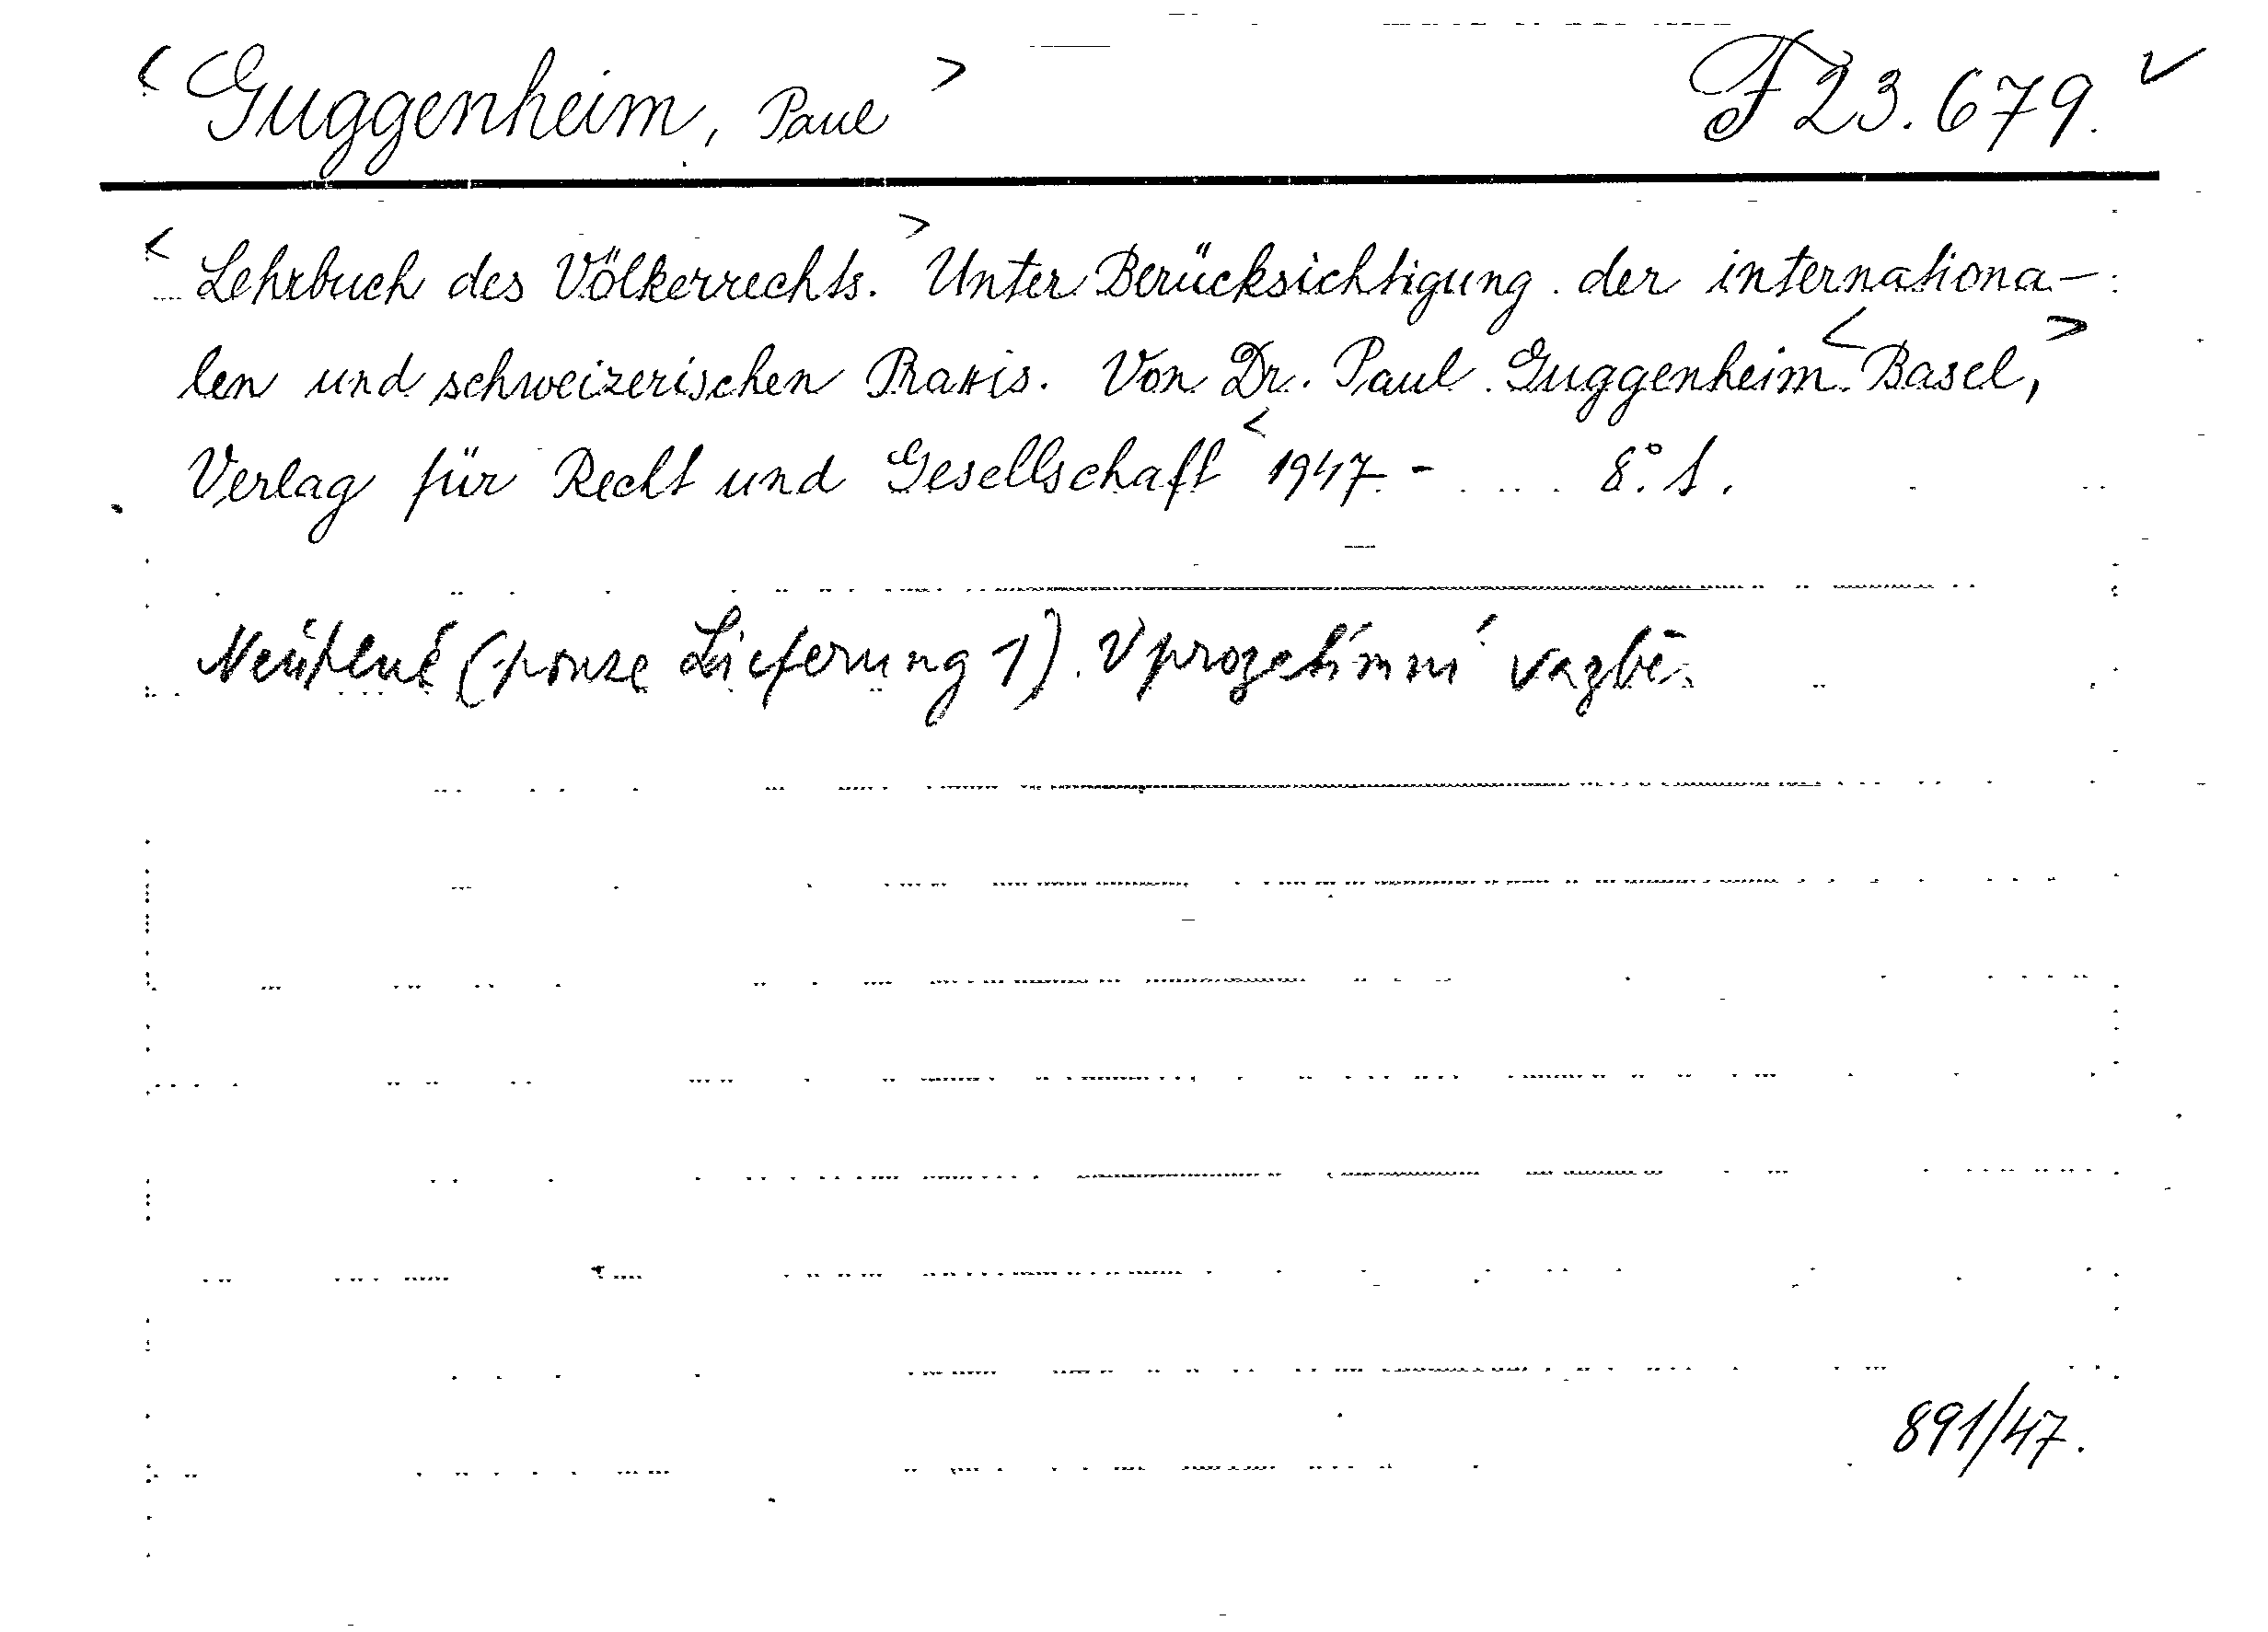 < Guggenheim, Paul > F 23.679. ✓
< Lehrbuch des Völkerrechts. > Unter Berücksichtigung der internationa-
len und schweizerischen Praxis. Von Dr. Paul Guggenheim. < Basel, >
Verlag für Recht und Gesellschaft < 1947 - .... 8°. 1.
Neúplné (pouze Lieferung 1). V prozatímní vazbě.
891/47.